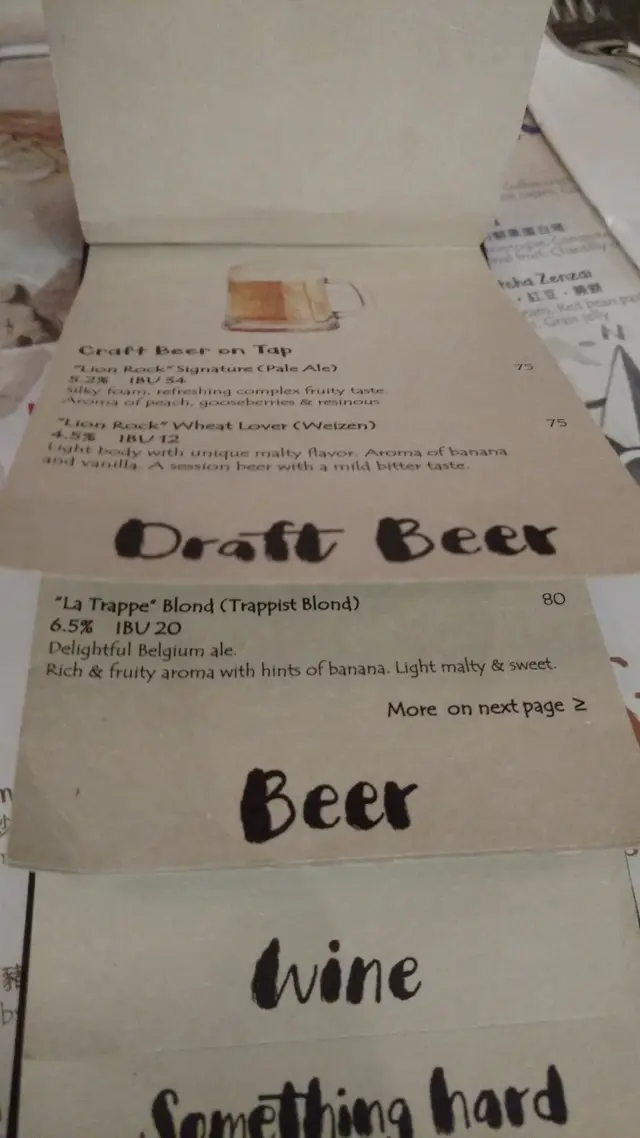 Craft Beer on Tap
"Lion Rock" Signature (Pale Ale) 75
5.2% IBU 34
Silky foam, refreshing complex fruity taste.
Aroma of peach, gooseberries & resinous
"Lion Rock" Wheat Lover (Weizen) 75
4.5% IBU 12
Light body with unique malty flavor. Aroma of banana
and vanilla. A session beer with a mild bitter taste.
Draft Beer
"La Trappe" Blond (Trappist Blond) 80
6.5% IBU 20
Delightful Belgium ale.
Rich & fruity aroma with hints of banana. Light malty & sweet.
More on next page ≥
Beer
Wine
Something hard
Zenzai
紅豆
Red bean
jelly
N
豬